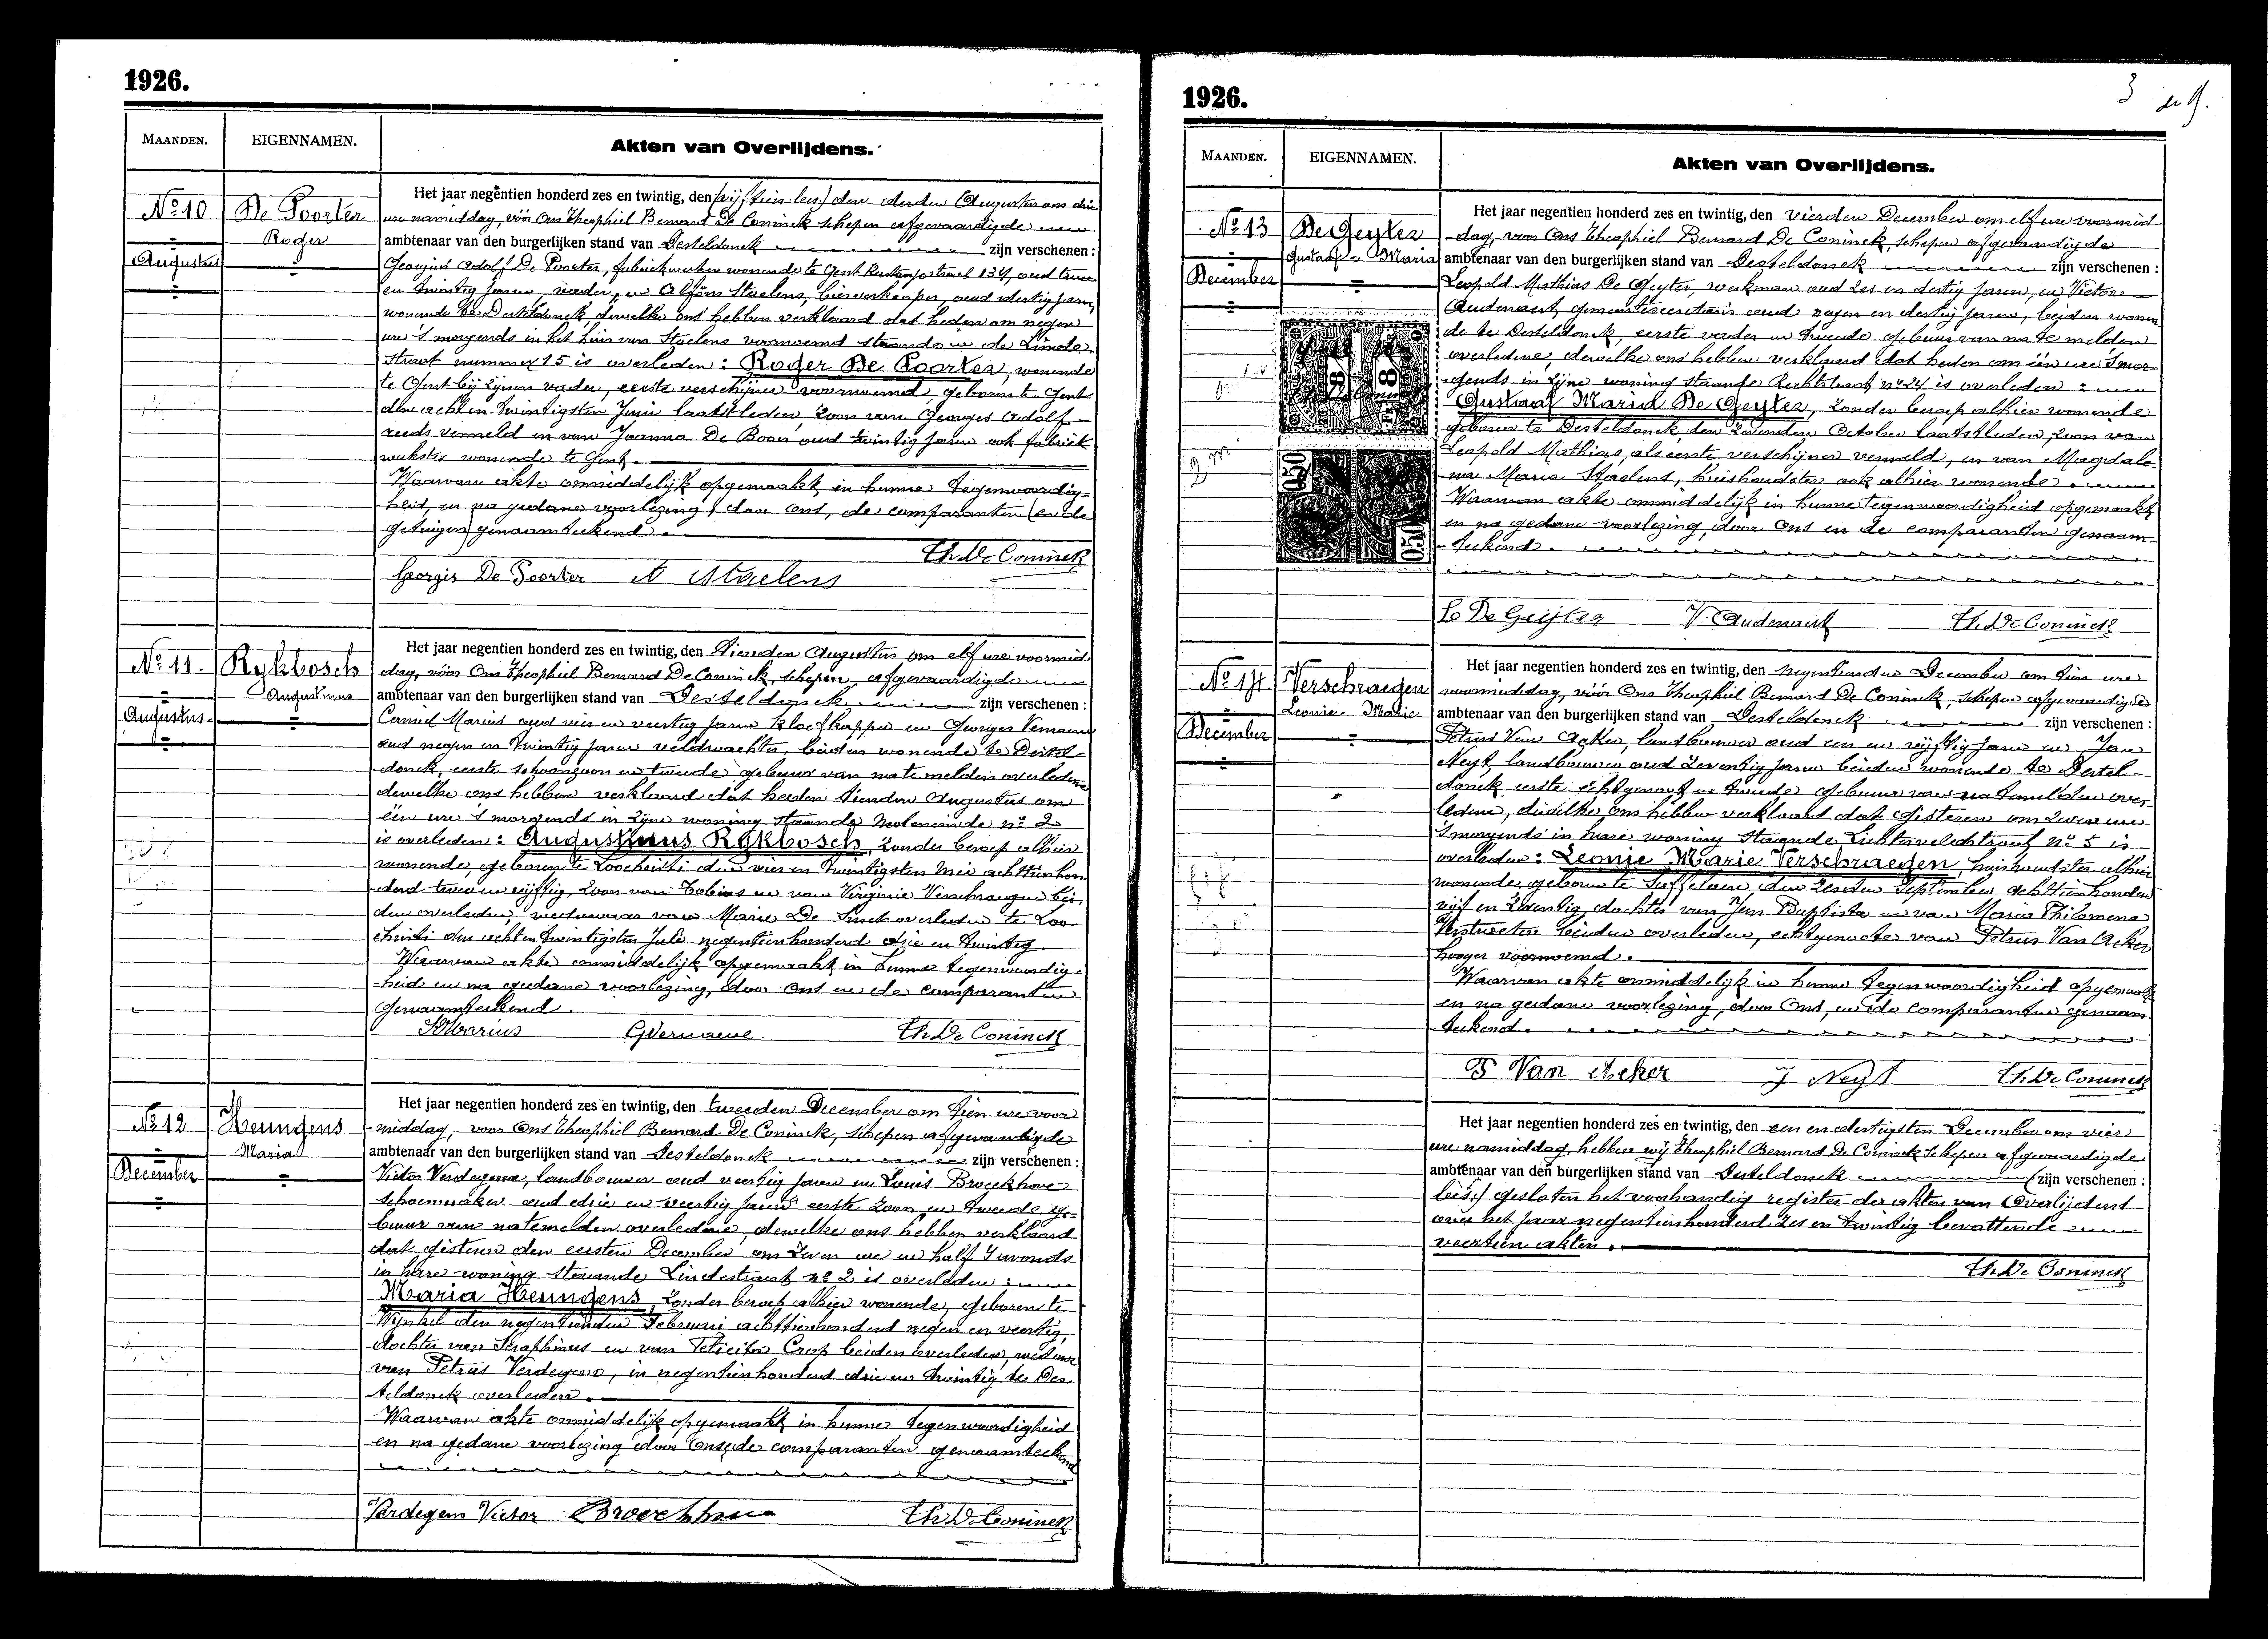 1926.
MAANDEN. EIGENNAMEN. Akten van Overlijdens.
No 10
De Poorter
Roger
Augustus
Het jaar negentien honderd zes en twintig, den (vijftien lees) den derden Augustus om drie
ure namiddag, vóór Ons Theophiel Bernard De Coninck schepen afgevaardigde
ambtenaar van den burgerlijken stand van Desteldonck zijn verschenen :
Georgius Adolf De Poorter, fabriekwerker wonende te Gent 134, oud twee
en twintig jaren, vader, en Alfons Staelens, bierverkooper, oud dertig jaren,
wonende te Desteldonck, dewelke ons hebben verklaard dat heden om negen
ure 's morgends in het huis van Staelens voornoemd staande in de Linde-
straat nummer 15 is overleden : Roger De Poorter, wonende
te Gent bij zijnen vader, eerste verschijner voornoemd, geboren te Gent
den acht en twintigsten Juni laatstleden, zoon van Georges Adolf
reeds vermeld en van Joanna De Boon oud twintig jaren ook fabriek
werkster wonende te Gent.
Waarvan akte onmiddelijk opgemaakt in hunne tegenwoordig-
heid, en na gedane voorlezing, door Ons, de comparanten (en de
getuigen) genaamteekend.
Th. De Coninck
Georgis De Poorter A Staelens
No 11.
Rykbosch
Augustinus
Augustus.
Het jaar negentien honderd zes en twintig, den tienden Augustus, om elf ure voormid
dag, vóór Ons Theophiel Bernard De Coninck, schepen afgevaardigde
ambtenaar van den burgerlijken stand van Desteldonck zijn verschenen :
Camiel Marius oud vier en veertig jaren kloefkapper en Georges Vernauwe
oud negen en twintig jaren veldwachter, beiden wonende te Destel-
donck, eerste schoonzoon en tweede gebuur van na te melden overledene
dewelke ons hebben verklaard dat heden tienden Augustus om
één ure 's morgends in zijne woning staande Moleneinde no 2
is overleden : Augustinus Rykbosch, zonder beroep alhier
wonende, geboren te Loochristi den vier en twintigsten Mei achttienhon
derd twee en vijftig, zoon van Tobias en van Virginie Verschraegen bei-
den overleden, weduwaar van Marie De Smet overleden te Loo-
christi den acht en twintigsten Juli negentienhonderd drie en twintig.
Waarvan akte onmiddelijk opgemaakt in hunne tegenwoordig-
heid en na gedane voorlezing, door Ons en de comparanten
genaamteekend.
Marius GVernauwe. Th. De Coninck
No 12
Heungens
Maria
December
Het jaar negentien honderd zes en twintig, den tweeden December om tien ure voor
middag, voor Ons Theophiel Bernard De Coninck, schepen afgevaardigde
ambtenaar van den burgerlijken stand van Desteldonck zijn verschenen :
Victor Verdegem, landbouwer oud veertig jaren en Louis Broeckhove
schoenmaker oud drie en veertig jaren eerste zoon en tweede ge-
buur van natemelden overledene, dewelke ons hebben verklaard
dat gisteren den eersten December om zeven ure en half 's avonds
in hare woning staande Lindestraat no 2 is overleden :
Maria Heungens, zonder beroep alhier wonende, geboren te
Wynkel den negentienden Februari achttienhonderd negen en veertig,
dochter van Seraphinus en van Felicita Crop beiden overleden, weduwe
van Petrus Verdegem, in negentienhonderd drie en twintig te Des-
teldonck overleden.
Waarvan akte onmiddelijk opgemaakt in hunne tegenwoordigheid
en na gedane voorlezing door Ons, de comparanten genaamteekend
Verdegem Victor Broeckhove Th. De Coninck
1926.
3
MAANDEN. EIGENNAMEN. Akten van Overlijdens.
No 13
De Geyter
Gustaaf - Maria
December
Het jaar negentien honderd zes en twintig, den vierden December om elf ure voormid
dag, voor Ons Theophiel Bernard De Coninck, schepen afgevaardigde
ambtenaar van den burgerlijken stand van Desteldonck zijn verschenen :
Leopold Mathias De Geyter, werkman oud zes en dertig jaren, en Victor
Audenaert, gemeentesecretaris oud negen en dertig jaren, beiden wonen-
de te Desteldonck, eerste vader en tweede gebuur van na te melden
overledene, dewelke ons hebben verklaard dat heden om één ure 's mor-
gends in zijne woning staande Rechtstraat no 24 is overleden :
Gustaaf Maria De Geyter, zonder beroep alhier wonende
geboren te Desteldonck, den zevenden October laatstleden, zoon van
Leopold Mathias, als eerste verschijner vermeld, en van Magdale-
na Maria Staelens, huishoudster ook alhier wonende.
Waarvan akte onmiddelijk in hunne tegenwoordigheid opgemaakt
en na gedane voorlezing, door Ons en de comparanten genaam-
teekend.
8 8
0.50 0.50
Le De Geijter V. Audenaert Th. De Coninck
No 14.
Verschraegen
Leonie - Marie
December
Het jaar negentien honderd zes en twintig, den negentienden December om tien ure
voormiddag, vóór Ons Theophiel Bernard De Coninck, schepen afgevaardigde
ambtenaar van den burgerlijken stand van Desteldonck zijn verschenen :
Petrus Van Acker, landbouwer oud een en vijftig jaren en Jan
Neyt, landbouwer oud zeventig jaren beiden wonende te Destel-
donck, eerste echtgenoot en tweede gebuur van na temelden over-
ledene, dewelke ons hebben verklaard dat gisteren om zeven ure
's morgends in hare woning staande Lichterveldestraat no 5 is
overleden : Leonie Marie Verschraegen, huishoudster alhier
wonende, geboren te Saffelaere den zesden September achttienhonderd
vijf en zeventig, dochter van Jan Baptiste en van Maria Philomena
Verstraeten beiden overleden, echtgenoote van Petrus Van Acker
hooger voornoemd.
Waarvan akte onmiddelijk in hunne tegenwoordigheid opgemaakt
en na gedane voorlezing, door Ons, en de comparanten genaam-
teekend.
P Van Acker J Neyt Th. De Coninck
Het jaar negentien honderd zes en twintig, den een en dertigsten December om vier
ure namiddag, hebben wij Theophiel Bernard De Coninck schepen afgevaardigde
ambtenaar van den burgerlijken stand van Desteldonck (zijn verschenen :
lees:) gesloten het voorhandig register der akten van Overlijdens
over het jaar negentienhonderd zes en twintig bevattende
veertien akten.
Th. De Coninck